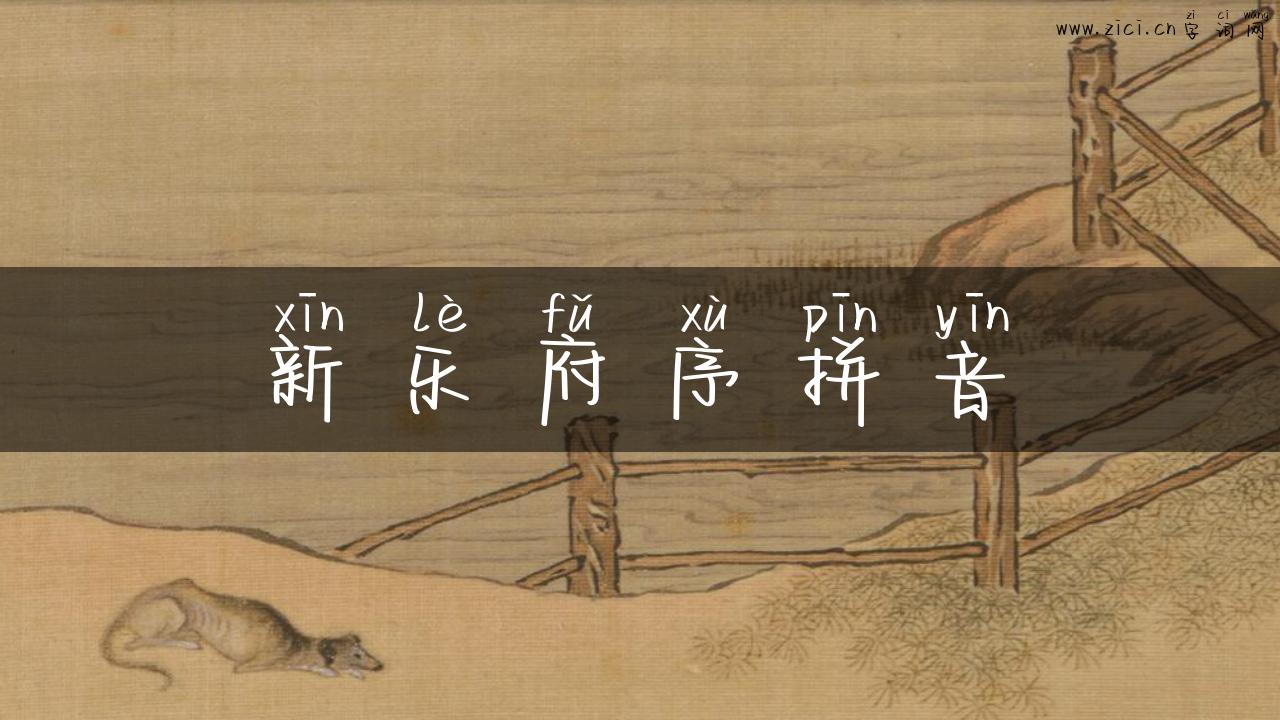 zì cí wǎng
www.zici.cn 字词网
xīn lè fǔ xù pīn yīn
新乐府序拼音